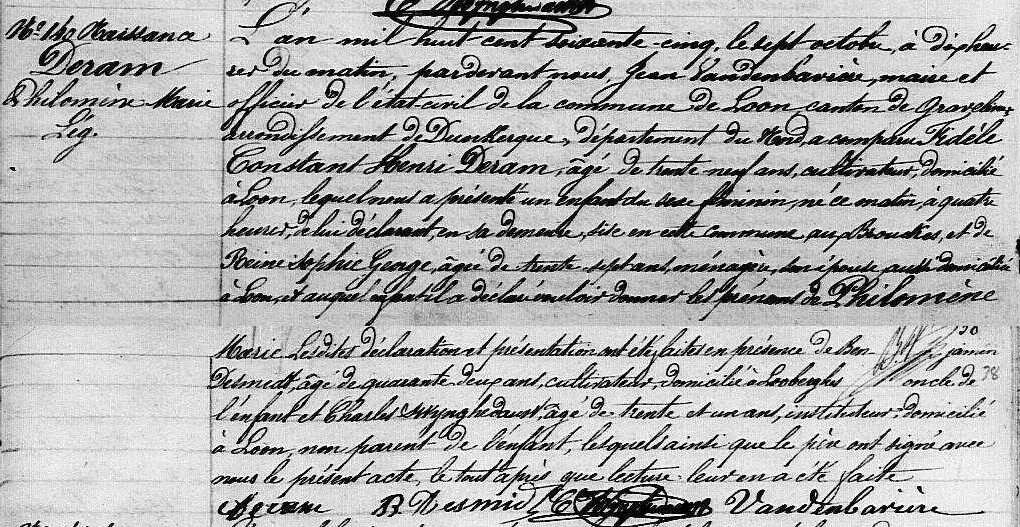 No 140 Naissance
Deram
Philomène Marie
Lég.
L'an mil huit cent soixante-cinq, le sept octobre, à dix heu-
res du matin, pardevant nous, Jean Vandenbavière, maire et
officier de l'état-civil de la commune de Loon canton de Gravelines
arrondissement de Dunkerque, département du Nord, a comparu Fidèle
Constant Henri Deram, âgé de trente neuf ans, cultivateur, domicilié
à Loon, lequel nous a présenté un enfant du sexe féminin, né ce matin, à quatre
heures, de lui déclarant, en sa demeure, sise en cette commune au Brouckes, et de
Reine Sophie George, âgée de trente sept ans, ménagère, son épouse, aussi domiciliée
à Loon, et auquel enfant il a déclaré vouloir donner les prénoms de Philomène
Marie Lesdites déclaration et présentation ont été faites en présence de Ben-jamin
Desmidt, âgé de quarante deux ans, cultivateur, domicilié à Looberghe oncle de
l'enfant et Charles Swynghedauw, âgé de trente et un ans, instituteur, domicilié
à Loon, non parent de l'enfant, lesquels ainsi que le père ont signé avec
nous le présent acte, le tout après que lecture leur en a été faite
Deram B Desmidt Vandenbavière